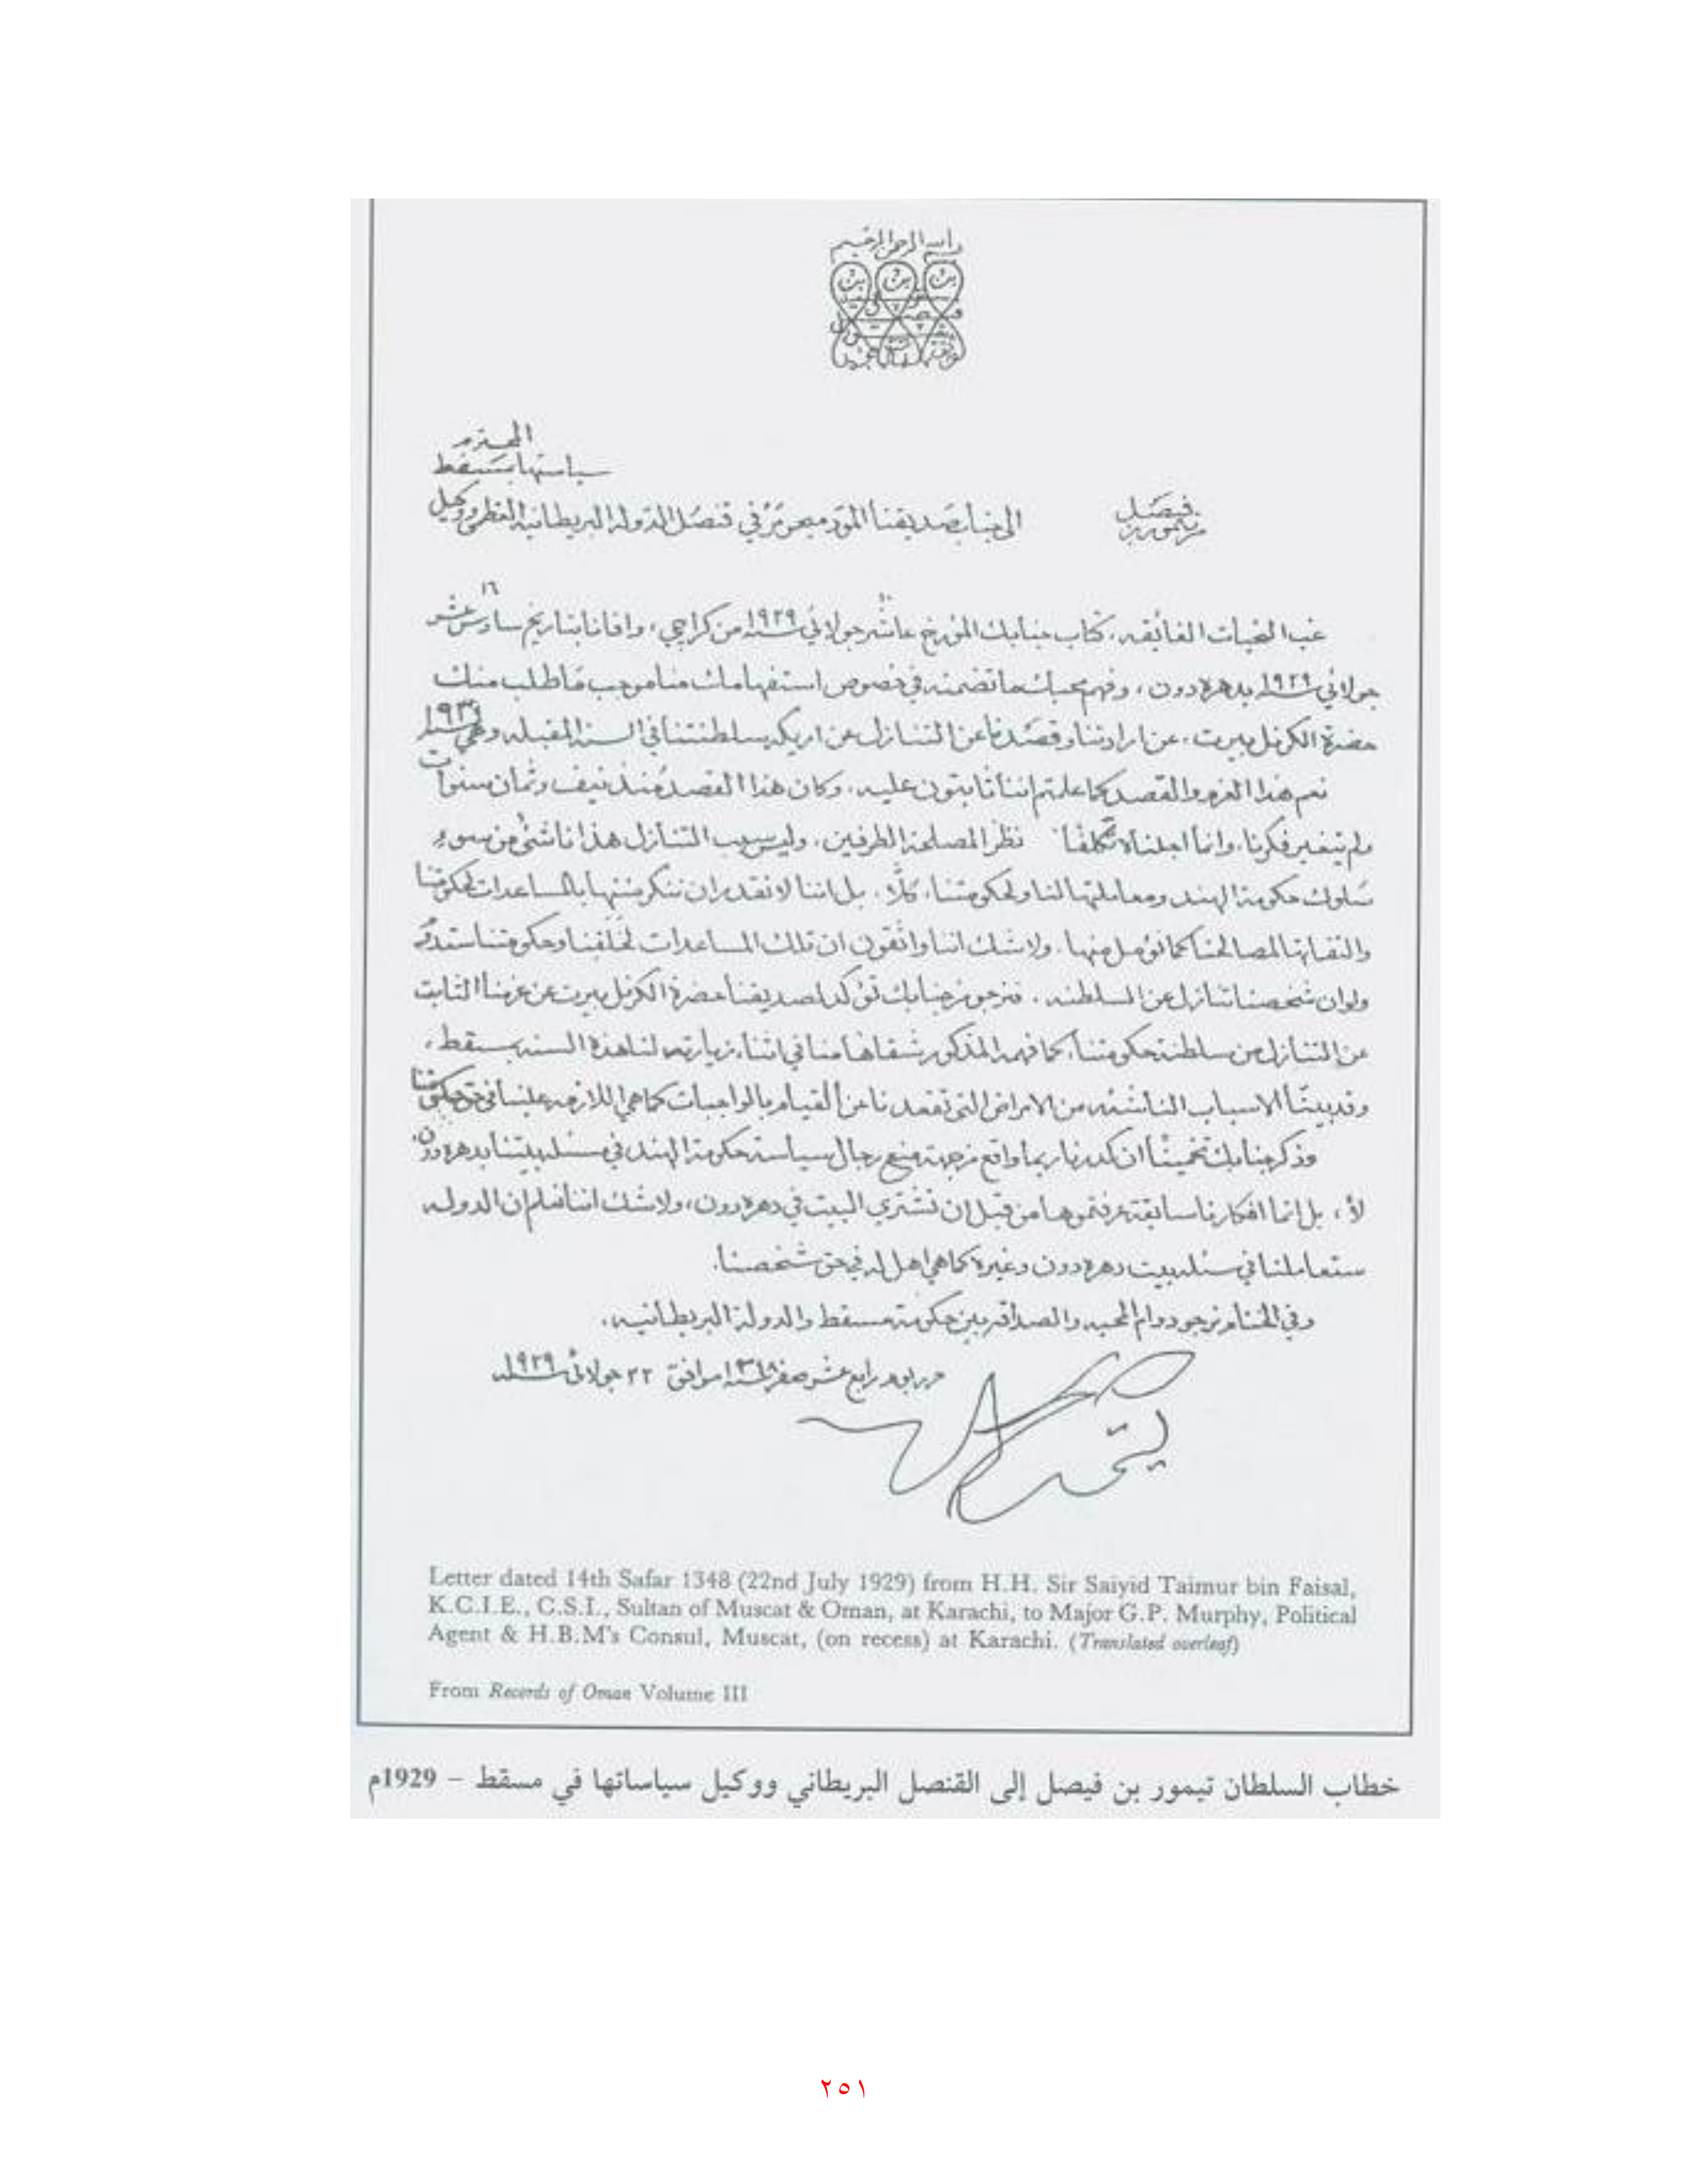 بسم الله الرحمن الرحيم
المحترم
سياستها بمسقط
الى جناب صديقنا المود ميجر مرفي قنصل الدولة البريطانية العظمى ووكيل
تيمور بن فيصل
غب التحيات الفائقه، كتاب جنابك المؤرخ عاشر ١٠ جولائي سنة ١٩٢٩ من كراچي، وافانا بتاريخ سادس عشر ١٦
جولائي سنة ١٩٢٩ بدهره دون، وفهم محبك ما تضمنه في خصوص استفهامك منا موجب ما طلب منك
حضرة الكرنل بيرت، عن ارادتنا وقصدنا عن التنازل عن اريكه سلطنتنا في السنة المقبله وهي سنة
نعم هذا العزم والقصد كما علمتم اننا ثابتون عليه، وكان هذا القصد منذ نيف وثمان سنوات
ولم يتغير فكرنا، وانما اجلناه تكلفا نظر المصلحة الطرفين، وليس سبب التنازل هذا ناشئ من سوء
سلوك حكومة الهند ومعاملتها لنا ولحكومتنا، كلا، بل اننا لا نقدر ان ننكر منتها بالمساعدات لحكومتنا
والتفاتها لمصالحنا كما نؤمل منها، ولا شك اننا واثقون ان تلك المساعدات لخلفنا وحكومتنا ستدوم
ولو ان شخصنا تنازل عن السلطنه، فنرجو من جنابك تؤكد لصديقنا حضرة الكرنل بيرت عن عزمنا الثابت
عن التنازل من سلطنة حكومتنا، كما فهمه المذكور شفاها منا في اثناء زيارته لنا هذه السنه بمسقط،
وقد بينا الاسباب الناشئه من الامراض التي تقعدنا عن القيام بالواجبات كما هي اللازمه علينا في حق حكومتنا
وذكر جنابك تخمينا ان كدرنا ربما واقع من جهة منع رجال سياسة حكومة الهند في مسئلة بيتنا بدهره دون،
لا، بل انما افكارنا سابقة عرفتموها من قبل ان نشتري البيت في دهره دون، ولا شك اننا نعلم ان الدوله
ستعاملنا في مسئلة بيت دهره دون وغيره كما هي اهل له في حق شخصنا.
وفي الختام نرجو دوام المحبه والصداقه بين حكومة مسقط والدولة البريطانيه.
حرر يوم رابع عشر صفر سنة ١٣٤٨ موافق ٢٢ جولائي سنة ١٩٢٩
Letter dated 14th Safar 1348 (22nd July 1929) from H.H. Sir Saiyid Taimur bin Faisal,
K.C.I.E., C.S.I., Sultan of Muscat & Oman, at Karachi, to Major G.P. Murphy, Political
Agent & H.B.M's Consul, Muscat, (on recess) at Karachi. (Translated overleaf)
From Records of Oman Volume III
خطاب السلطان تيمور بن فيصل إلى القنصل البريطاني ووكيل سياساتها في مسقط – 1929م
٢٥١